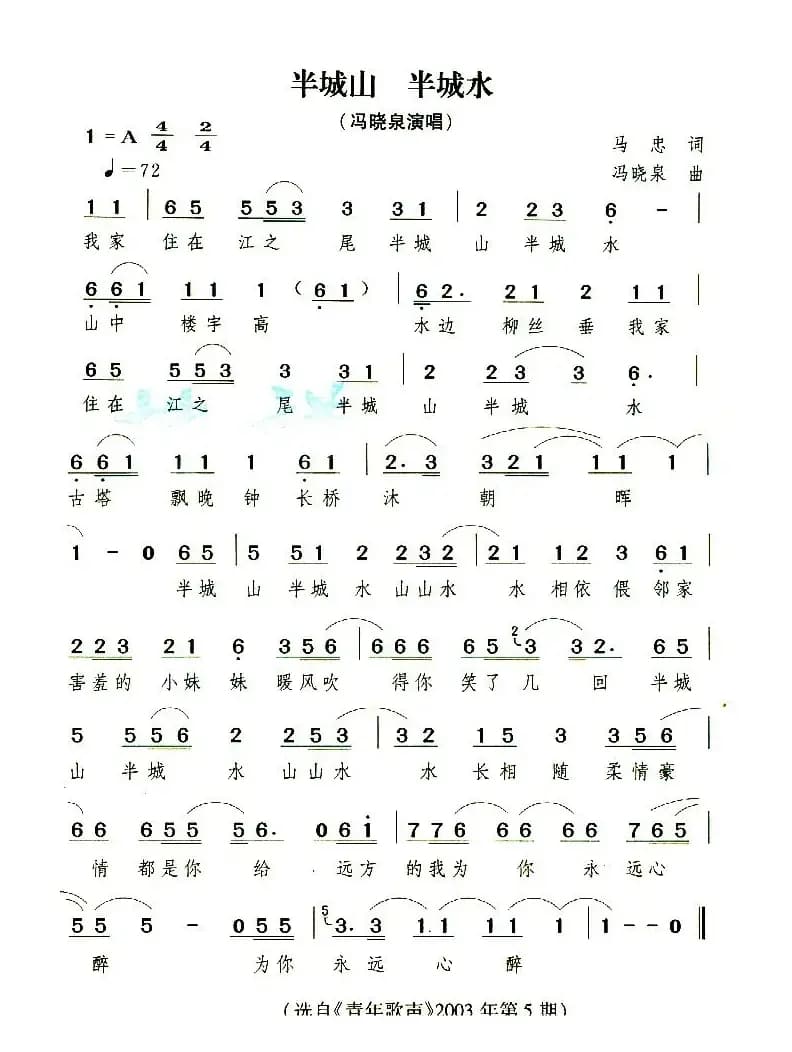 半城山 半城水
（冯晓泉演唱）
1=A 4/4 2/4
马忠 词
♩=72
冯晓泉 曲
1 1 | 6 5 5 5 3 3 3 1 | 2 2 2 3 6 - |
我家 住在 江之 尾 半城 山 半城 水
6 6 1 1 1 1 （6 1）| 6 2. 2 1 2 3 1 |
山中 楼宇 高 水边 柳丝 垂 我家
6 5 5 5 3 3 3 1 | 2 2 3 3 6. |
住在 江之 尾 半城 山 半城 水
6 6 1 1 1 1 6 1 | 2. 3 3 2 1 1 1 1 |
古塔 飘晚 钟 长桥 沐 朝 晖
1 - 0 6 5 | 5 5 1 2 2 2 3 2 | 2 1 2 2 3 6 1 |
半城 山 半城 水 山山水 水 相依 偎 邻家
2 2 3 2 1 6 3 5 6 | 6 6 6 5 3 3 2. 6 5 |
害羞的 小妹 妹 暖风吹 得你 笑了 几 回 半城
5 5 5 6 2 2 2 5 3 | 3 2 2 1 5 5 5 6 |
山 半城 水 山山水 水 长相 随 柔情豪
6 6 5 5 5 5 6. 0 6 1 | 7 7 6 6 6 5 6 7 6 5 |
情 都是你 给 远方 的我为 你 永远心
5 5 5 - 0 5 5 | 3. 3 1 1 1 1 | 1 - 0 ‖
醉 为你 永远 心 醉
（选自《青年歌声》2003年第5期）